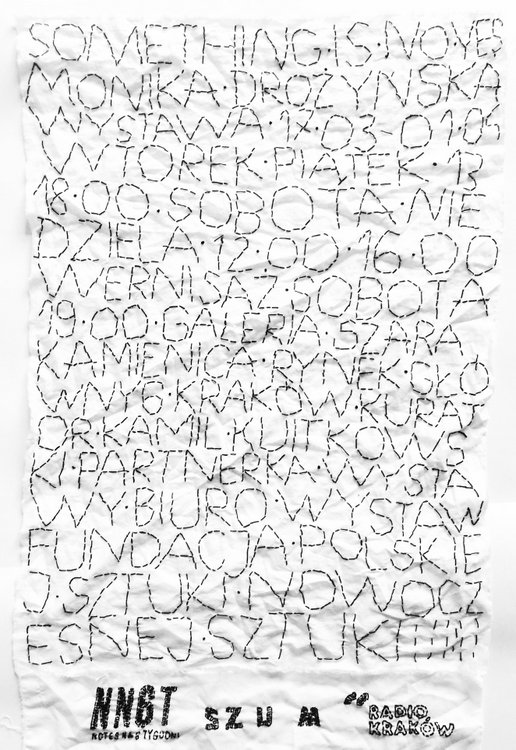 SOMETHING·IS·NO·YES
MONIKA·DROŻYŃSKA
WYSTAWA·1X·03–01·04
WTOREK·PIĄTEK·13
18·00·SOBOTA·NIE
DZIELA·12·00·16·00
WERNISAŻ·SOBOTA
19·00·GALERIA·SZARA
KAMIENICA·RYNEK·GŁÓ
WNY6·KRAKÓW·KURAT
OR·KAMIL·KUITKOWS
KI·PARTNERKA·WYSTA
WY·BIURO·WYSTAW
FUNDACJA·POLSKIE
J·SZTUKI·NOWOCZ
ESNEJ·SZTUKI
NN6T
NOTES NA 6 TYGODNI
SZUM
RADIO
KRAKÓW